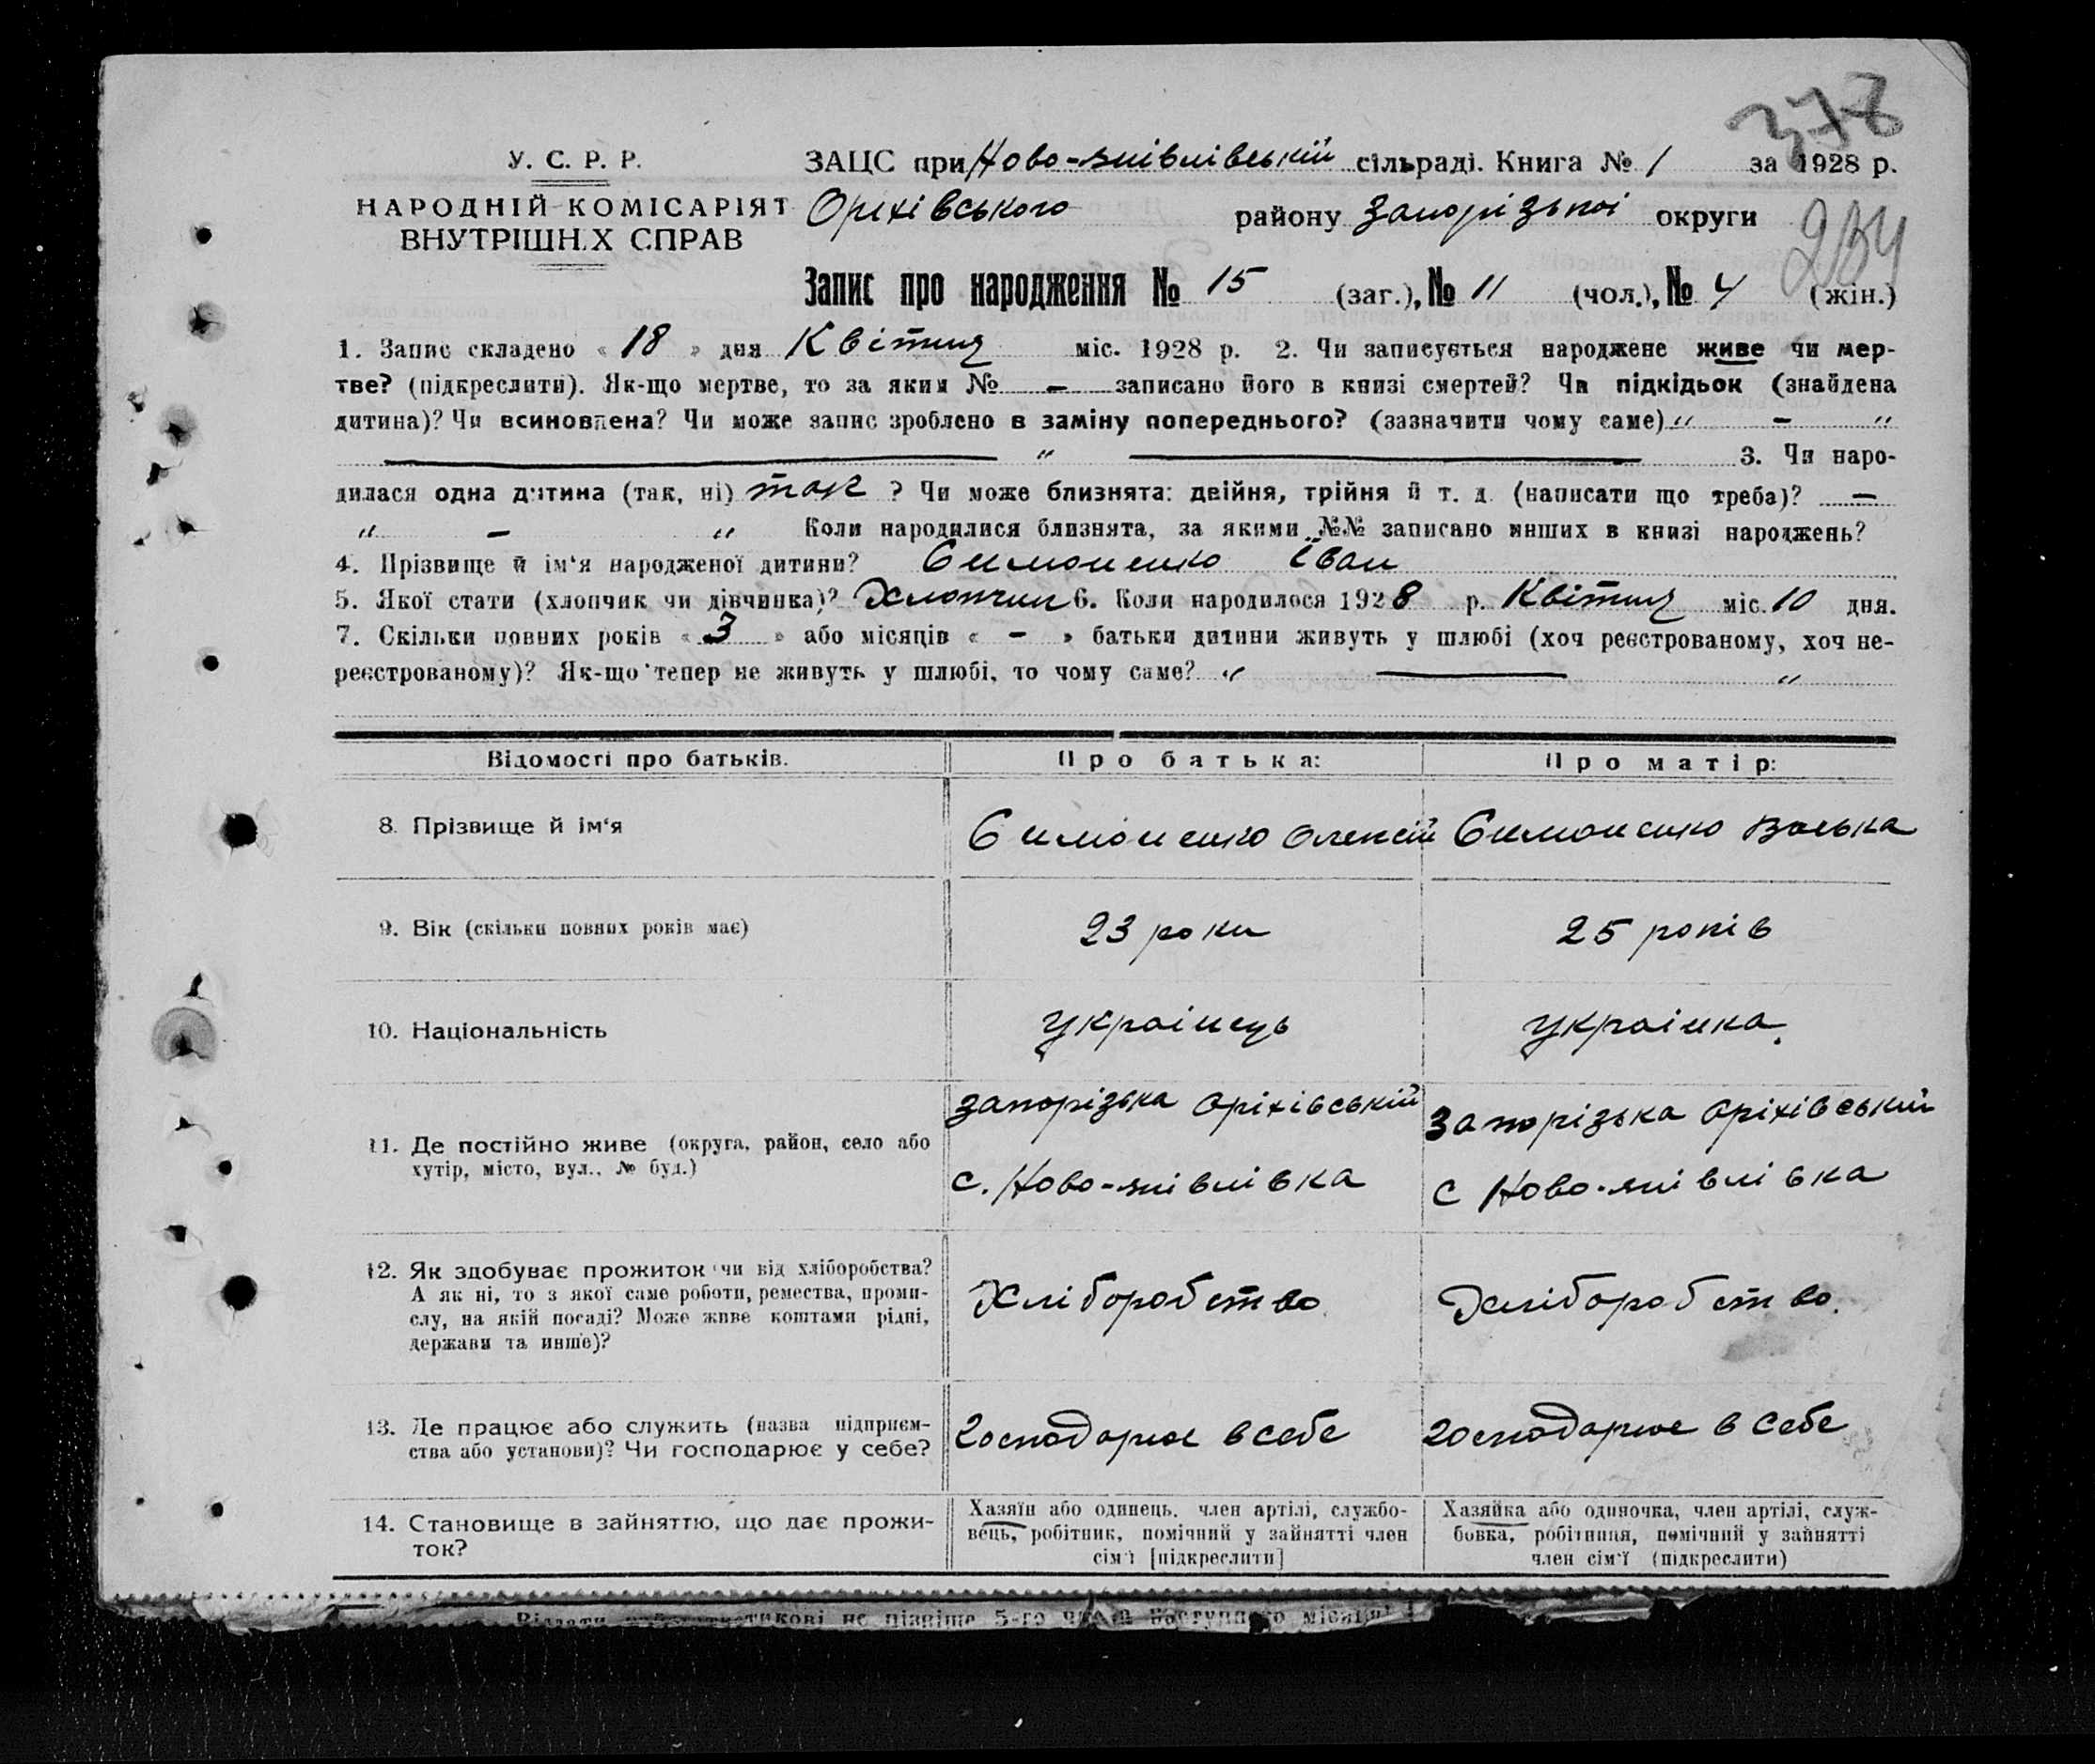 378
У. С. Р. Р.
НАРОДНІЙ КОМІСАРІЯТ
ВНУТРІШН.Х СПРАВ
ЗАЦС при Ново-янівлівській сільраді. Книга № 1 за 1928 р.
Оріхівського району Запорізької округи
234
Запис про народження № 15 (заг.), № 11 (чол.), № 4 (жін.)
1. Запис складено « 18 » дня Квітня міс. 1928 р. 2. Чи записується народжене живе чи мер-
тве? (підкреслити). Як-що мертве, то за яким № – записано його в книзі смертей? Чи підкідьок (знайдена
дитина)? Чи всиновлена? Чи може запис зроблено в заміну попереднього? (зазначити чому саме) „ – „
„ 3. Чи наро-
дилася одна дитина (так, ні) так ? Чи може близнята: двійня, трійня й т. д. (написати що треба)? —
„ – „ Коли народилися близнята, за якими №№ записано инших в книзі народжень?
4. Прізвище й ім'я народженої дитини? Симоненко Іван
5. Якої стати (хлопчик чи дівчинка)? Хлопчик 6. Коли народилося 1928 р. Квітня міс. 10 дня.
7. Скільки повних років « 3 » або місяців « – » батьки дитини живуть у шлюбі (хоч реєстрованому, хоч не-
реєстрованому)? Як-що тепер не живуть у шлюбі, то чому саме? „ — „
Відомості про батьків. Про батька: Про матір:
8. Прізвище й ім'я Симоненко Олексій Симоненко Васька
9. Вік (скільки повних років має) 23 роки 25 років
10. Національність Українець Українка.
11. Де постійно живе (округа, район, село або
хутір, місто, вул., № буд.)
запорізька Оріхівській
с. Ново-янівлівка
Запорізька Оріхівський
с Ново-янівлівка
12. Як здобуває прожиток чи від хліборобства?
А як ні, то з якої саме роботи, ремества, проми-
слу, на якій посаді? Може живе коштами рідні,
держави та инше)?
Хліборобство
Хліборобство.
13. Де працює або служить (назва підприєм-
ства або установи)? Чи господарює у себе?
Господарює в себе
Господарює в себе
14. Становище в зайняттю, що дає прожи-
ток?
Хазяїн або одинець, член артілі, службо-
вець, робітник, помічний у зайнятті член
сім'ї [підкреслити]
Хазяйка або одиночка, член артілі, служ-
бовка, робітниця, помічний у зайнятті
член сім'ї (підкреслити)
не пізніше 5-го наступного місяця!